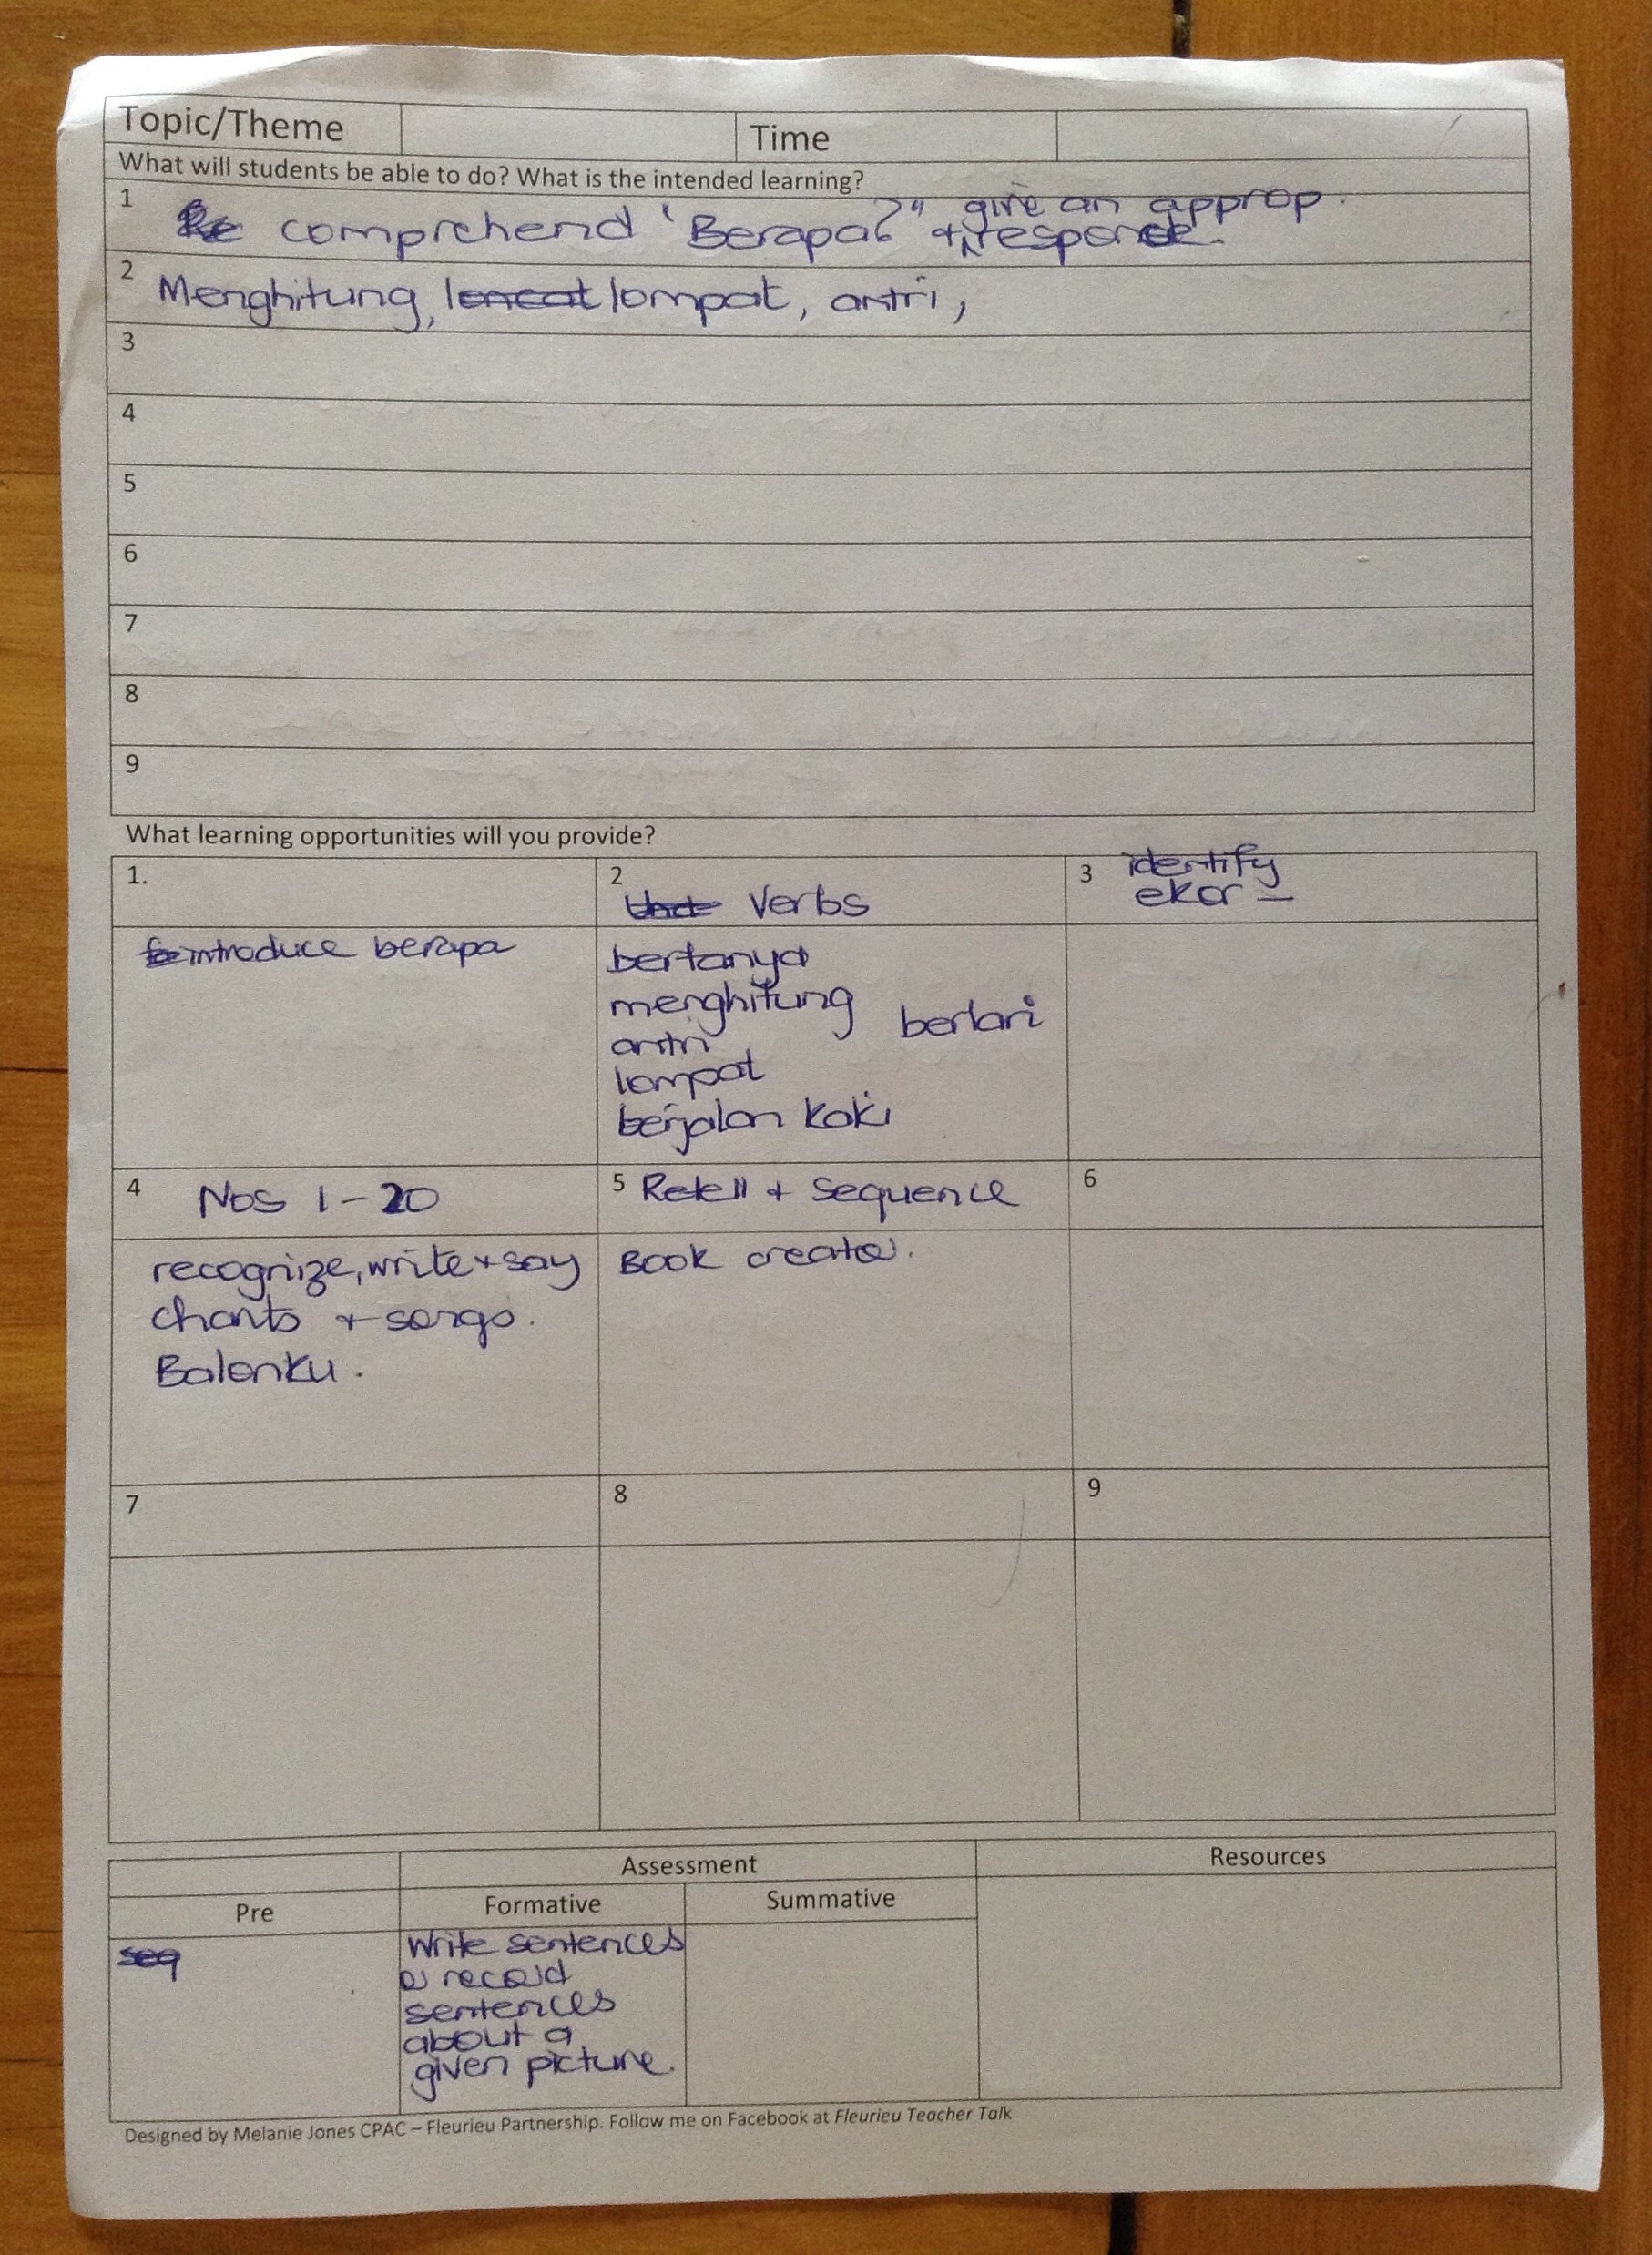 Topic/Theme Time
What will students be able to do? What is the intended learning?
1 comprehend 'Berapa?" + give an approp. response.
2 Menghitung, loncat lompat, antri,
3
4
5
6
7
8
9
What learning opportunities will you provide?
1. 2 Verbs 3 identify
ekor –
introduce berapa
bertanya
menghitung berlari
antri
lompat
berjalan kaki
4 Nos 1-20 5 Retell + sequence 6
recognize, write + say
chants + songs.
Balonku.
Book creator.
7 8 9
Assessment Resources
Pre Formative Summative
seq
Write sentences
or record
sentences
about a
given picture.
Designed by Melanie Jones CPAC – Fleurieu Partnership. Follow me on Facebook at Fleurieu Teacher Talk